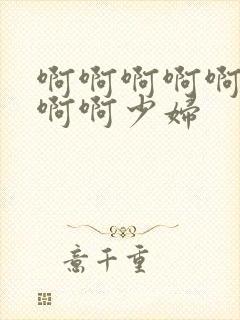 啊啊啊啊啊
啊啊少婦
意千重